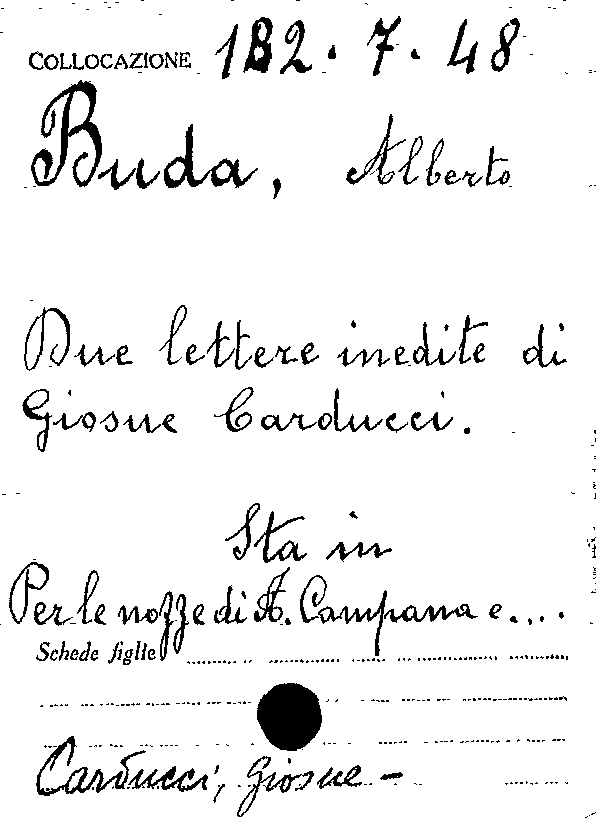 COLLOCAZIONE 1B2.7.48
Buda, Alberto
Due lettere inedite di
Giosue Carducci.
Sta in
Per le nozze di A. Campana e....
Schede figlie
Carducci, Giosue -